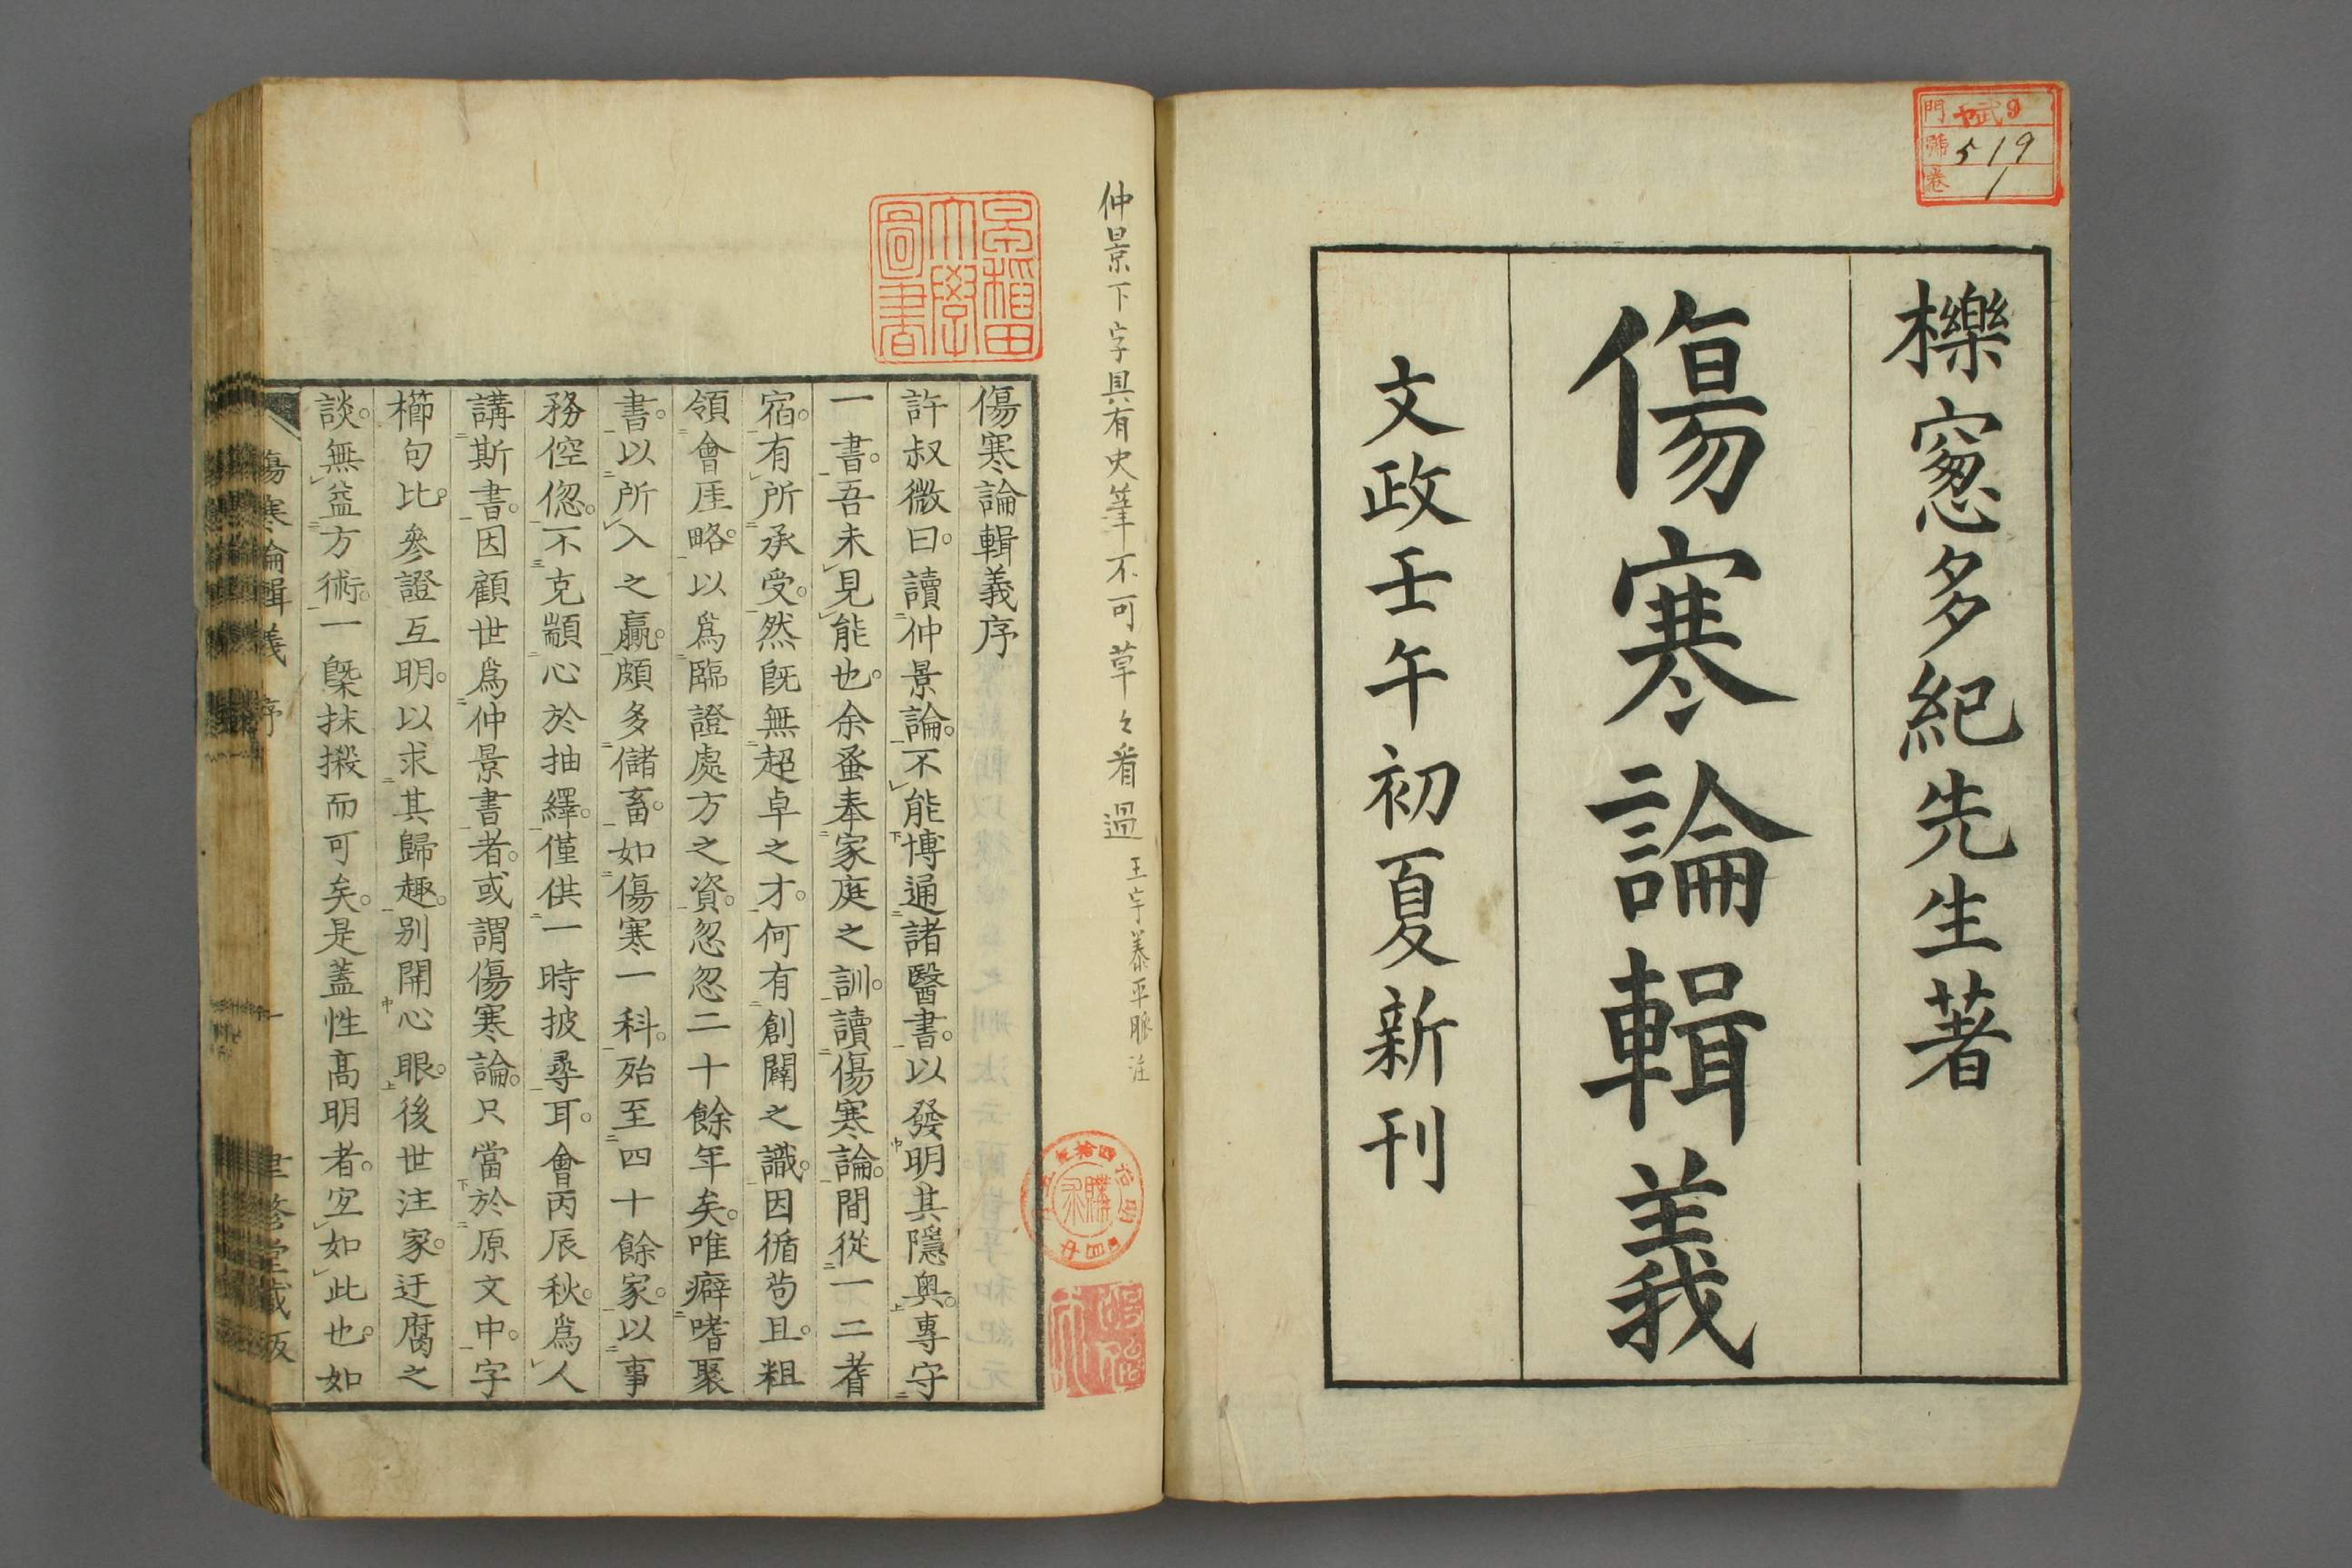 櫟窻多紀先生著
傷寒論輯義
文政壬午初夏新刊
門 ヤ武9
號 519
卷 1
仲景下字具有史筆不可草々看過 王宇泰平脉注
早稲田大學圖書
傷寒論輯義序
許叔微曰。讀仲景論。不能博通諸醫書。以發明其隱奧。專守
一書。吾未見能也。余蚤奉家庭之訓。讀傷寒論。間從一二耆
宿。有所承受。然旣無超卓之才。何有創闢之識。因循茍且。粗
領會厓略。以爲臨證處方之資。忽忽二十餘年矣。唯癖嗜聚
書。以所入之贏。頗多儲畜。如傷寒一科。殆至四十餘家。以事
務倥偬。不克顓心於抽繹。僅供一時披尋耳。會丙辰秋。爲人
講斯書。因顧世爲仲景書者。或謂傷寒論。只當於原文中。字
櫛句比。參證互明。以求其歸趣。别開心眼。後世注家。迂腐之
談。無益方術。一槩抹摋而可矣。是蓋性高明者。宐如此也。如
傷寒論輯義 序 一 聿修堂藏版